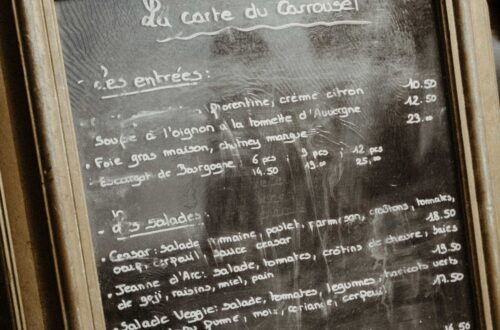 La carte du Carrousel
- Les entrées :
florentine, crème citron 10.50
Soupe à l'oignon à la tommette d'Auvergne 12.50
• Foie gras maison, chutney mangue 23.00
• Escargot de Bourgogne 6 pcs ; 9 pcs ; 12 pcs
14.50 19.00 25,00
- Les salades :
• Ceasar: salade romaine, poulet, parmesan, croûtons, tomates,
oeuf, cerfeuil, sauce cesar 18.50
• Jeanne d'Arc: salade, tomates, crôtins de chèvre, baies
de goji, raisins, miel, pain 19.50
• Salade Veggie: salade, tomates, legumes, haricots verts
pomme, maïs, coriandre, cerfeuil 17.50